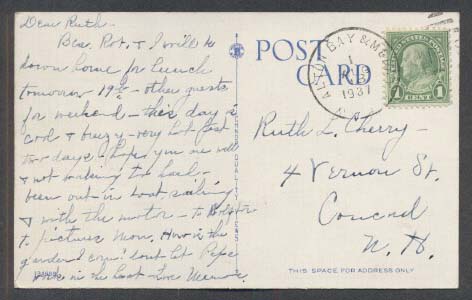 Dear Ruth -
Bea, Rob, & I will be
down home for lunch
tomorrow 19th - other guests
for weekend - this day is
cool & breezy - very hot past
two days - hope you are well
& not working too hard -
been out in boat, sailing
& with the motor - to
to pictures Mon. How is the
garden & corn? don't let
work in the heat Love
POST
CARD
ALTON BAY &
1937
1 CENT 1
Ruth L. Cherry -
4 Vernon St.
Concord
N. H.
THIS SPACE FOR ADDRESS ONLY